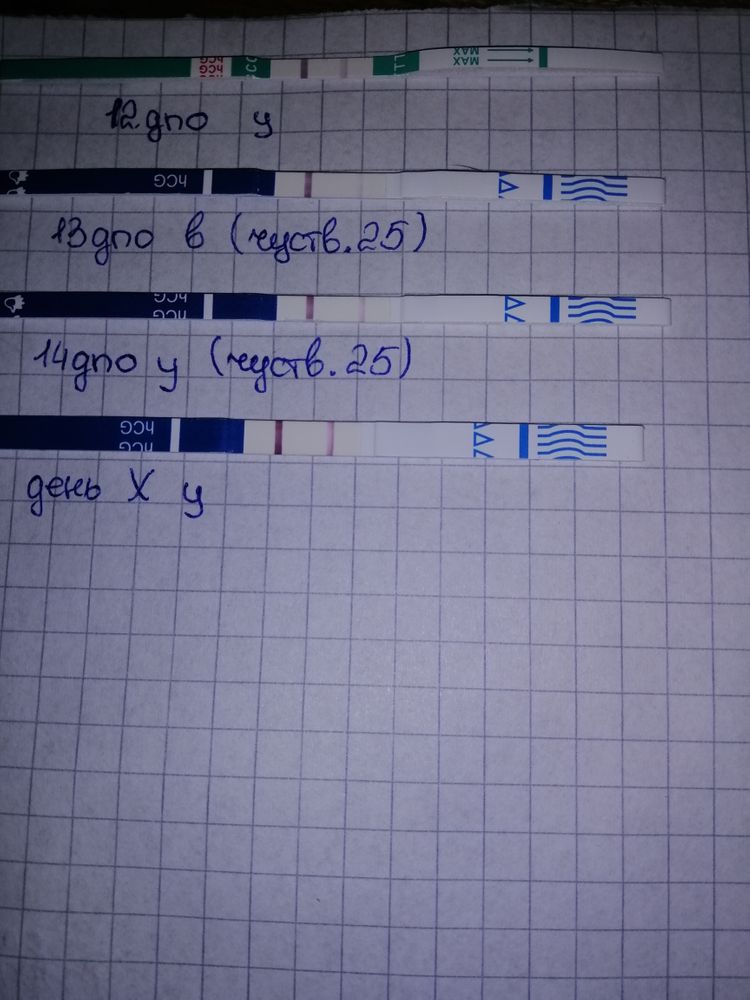 hCG
hCG
MAX
MAX
12 дпо у
hCG
13 дпо в (чуств. 25)
hCG
hCG
14 дпо у (чуств. 25)
hCG
hCG
день X у